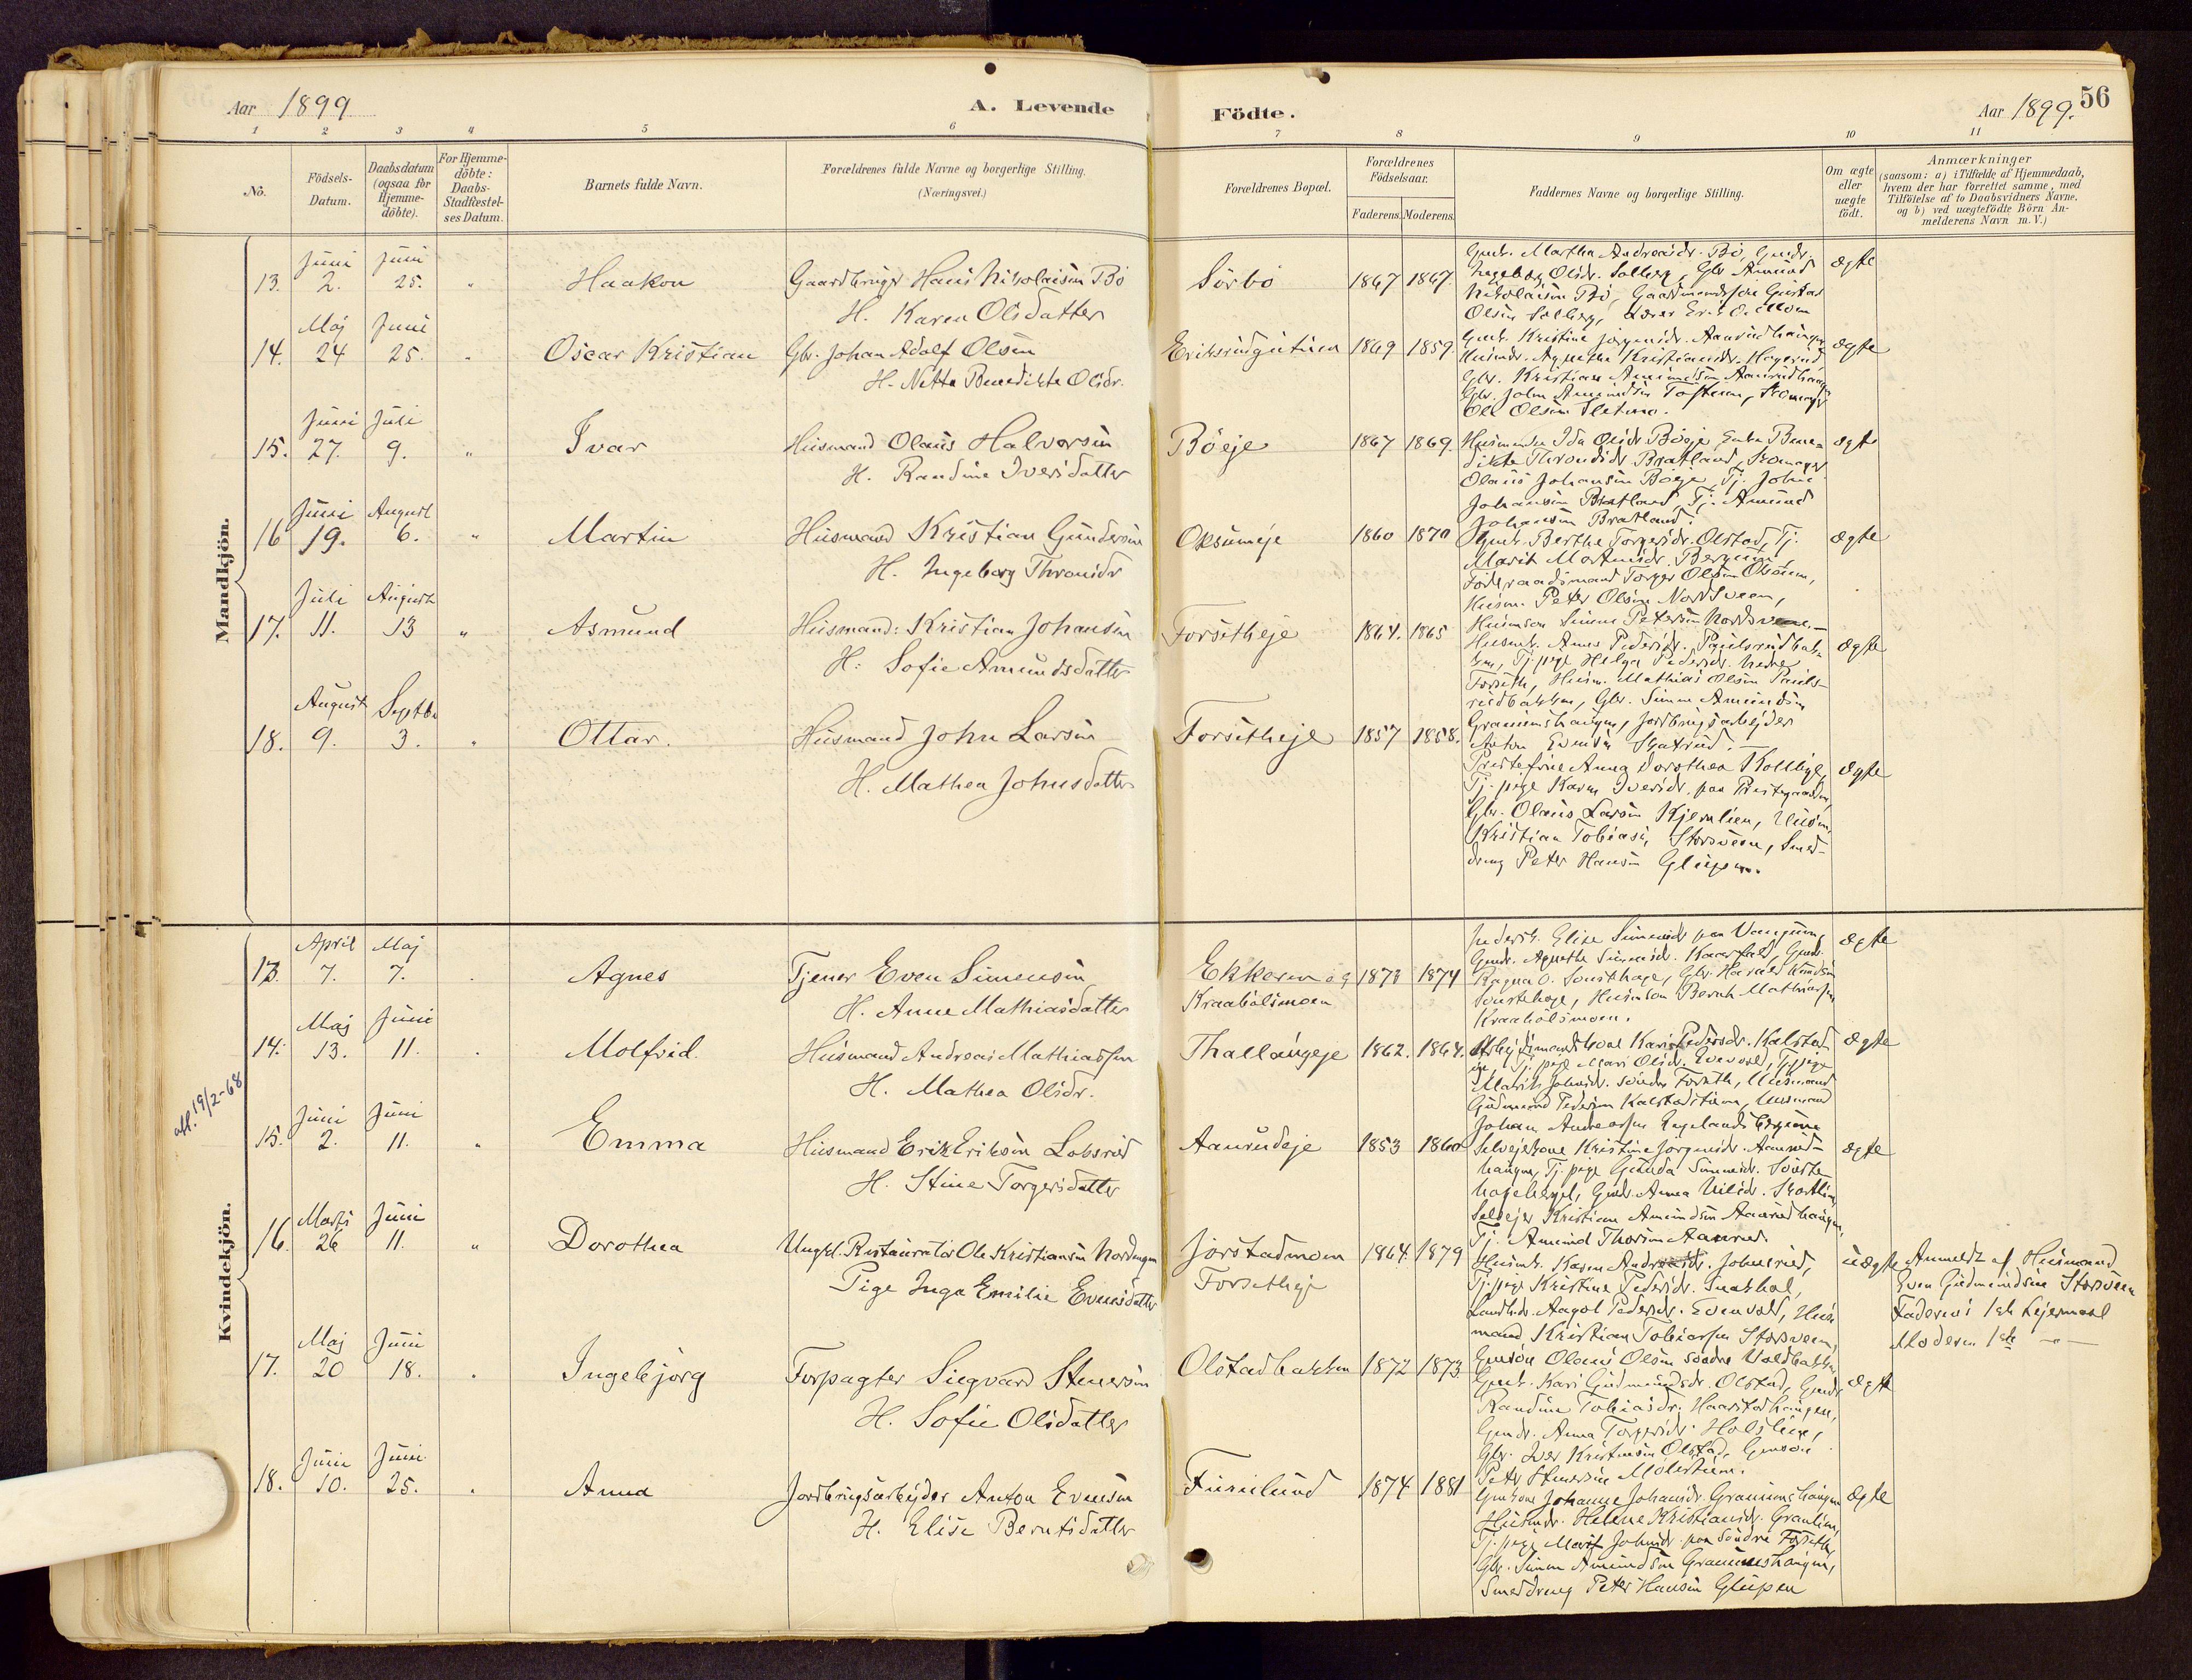 Aar 1899
A. Levende
Födte.
Aar 1899.
56
1 2 3 4 5 6 7 8 9 10 11
No.
Födsels-Datum.
Daabsdatum (ogsaa for Hjemme-döbte).
For Hjemme-döbte: Daabs-Stadfæstel-ses Datum.
Barnets fulde Navn.
Forældrenes fulde Navne og borgerlige Stilling. (Næringsvei.)
Forældrenes Bopæl.
Forældrenes Födselsaar.
Faderens. Moderens.
Faddernes Navne og borgerlige Stilling.
Om ægte eller uægte födt.
Anmærkninger
(saasom: a) i Tilfælde af Hjemmedaab,
hvem der har forrettet samme, med
Tilföielse af to Daabsvidners Navne.
og b) ved uægtefödte Börn An-
melderens Navn m. V.)
Mandkjön.
13. Juni 2. Juni 25. " Haakon
Gaardbruger Hans Nikolaisen Bö
H. Karen Olsdatter
Sörbö 1867 1867.
Gmdr. Martha Andreasdr. Bö, Gmdr.
Ingeborg Olsdr. Solberg, Gbr Amund
Nikolaisen Bö, Gaardmandssön Gustav
Olsen Solberg, Lærer Erik O.
ægte
14. Maj 24 Juni 25. " Oscar Kristian
Gbr. Johan Adolf Olsen
H. Netta Benedikte Olsdr.
Eriksrudgutuen 1869 1859.
Gmk. Kristine Jörgensdr. Aanrudhaugen
Husmdr. Agnethe Kristiansdr. Hagerud
Gbr. Kristian Amundsen Aanrudhaugen
Gbr. John Amundsen Toftum, Skomager
Ole Olsen
ægte
15. Juni 27. Juli 9. " Ivar
Husmand Olaus Halvorsen
H. Randine Iversdatter
Böeje 1867 1869.
Husmandsk. Ida Olsdr. Böeje Enke Bene-
dikte Throndsdr. Bratland, Skomager
Olaus Johansen Böeje, Tj. Johan
Johansen Bratland, Tj. Amund
Johansen Bratland.
ægte
16 Juni 19. August 6. " Martin
Husmand Kristian Gundersen
H. Ingeborg Thronsdr
Olsumeje 1860 1870
Gmk. Berthe Torgersdr. Olstad, Tj.
Marit Mortensdr.
Föderaadsmand Torger Olsen Olsum,
Husm. Peter Olsen Nordsveen,
Husmson Simen Petersen Nordsveen.
ægte
17. Juli 11. August 13 " Asmund
Husmand: Kristian Johansen
H: Sofie Amundsdatter
Forsetheje 1864. 1865
Husmk. Anne Pedersdr. Paulsrudbak-
ken, Tj.pige Helga Pedersdr. nedre
Forseth, Husm. Mathias Olsen Pauls-
rudbakken, Gbr. Simen Amundsen
Graunenshaugen, Jordbrugsarbejder
Anton Evensen
ægte
18. August 9. Septbr 3. " Ottar.
Husmand John Larsen
H. Mathea Johnsdatter
Forsetheje 1857 1858.
Præstefrue Anna Dorothea
Tj.pige Karen Iversdr. paa Præstegaarden,
Gbr. Olaus Larsen Kjernlien, Husm.
Kristian Tobiasen Storsveen, Smed-
dreng Peter Hansen Glupen.
ægte
Kvindekjön.
13. April 7. Maj 7. Agnes
Tjener Even Simensen
H. Anne Mathiasdatter
Ekkeren og
Kraabölsmoen
1873 1874
Inderstk. Elise Simensdr
Gmdr. Agnethe Simensdr.
Ragna O. Sonstehage, Gbr. Harald Knudsen
Sonstehage, Husmson Bernh Mathiassen
Kraabölsmoen.
ægte
14. Maj 13. Juni 11. Molfrid.
Husmand Andreas Mathiassen
H. Mathea Olsdr.
Thallaugeje 1862. 1864.
Arbejdsmandskone Kari Pedersdr. Kalstad-
eje, Tj.pige Mari Olsdr. Evenvold, Tj.pige
Marith Johnsdr. söndre Forseth, Husmand
Gudmund Pedersen Kalstadstuen, Husmand
Johan Andreassen
ægte
aff. 19/2-68
15. Juni 2. Juni 11. " Emma
Husmand Erik Eriksen Loksrud
H. Stine Torgersdatter
Aanrudeje 1853 1860
Selvejerkone Kristine Jörgensdr. Aanrud-
haugen, Tj.pige Gunda Simensdr. Sonste-
hagehegel, Gmdr. Anna Nilsdr.
Selvejer Kristian Amundsen Aanrudhaugen,
Tj. Amund Thorsen Aanrud.
ægte
16. Marts 26 Juni 11. " Dorothea
Ungkl. Restauratör Ole Kristiansen Nordengen
Pige Inga Emilie Evensdatter
Jörstadmoen
Forsetheje
1864. 1879
Husmk. Karen Andreasdr. Johnsrud,
Tj.pige Kristine Pedersdr.
Landhdr. Aagot Pedersdr. Evenvold, Hus-
mand Kristian Tobiassen Storsveen,
Gmsön Olaus Olsen söndre Voldbakken
uægte
Anmeldt af Husmand
Even Gudmundsen Storsveen
Faderens 1ste Lejermaal
Moderen 1ste —"—
17. Maj 20 Juni 18. Ingebjörg
Forpagter Sigvard Stenersen
H. Sofie Olsdatter
Olstadbakken 1872 1873
Gmk. Kari Gudmundsdr. Olstad, Gmdr
Randine Tobiasdr. Haarstadhaugen,
Gmdr. Anna Torgersdr. Holslien,
Gbr. Iver Kristensen Olstad, Gmsön
Peter Stenersen
ægte
18. Juni 10. Juni 25. Anna
Jordbrugsarbejder Anton Evensen
H. Elise Berntsdatter
Furulund 1874 1881
Gmkone Johanne Johansdr. Graunenshaugen
Husmdr. Helene Kristiansdr. Granlien,
Tj.pige Marit Johnsdr. paa Söndre Forseth,
Gbr. Simen Amundsen Graunenshaugen,
Smeddreng Peter Hansen Glupen
ægte